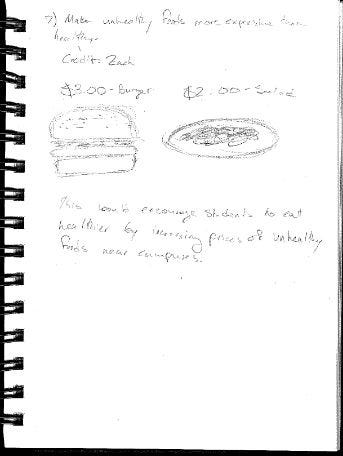 7) Make unhealthy foods more expensive than
healthy.
Credit: Zach
$3.00 - Burger $2.00 - Salad
This would encourage students to eat
healthier by increasing prices of unhealthy
foods near campuses.